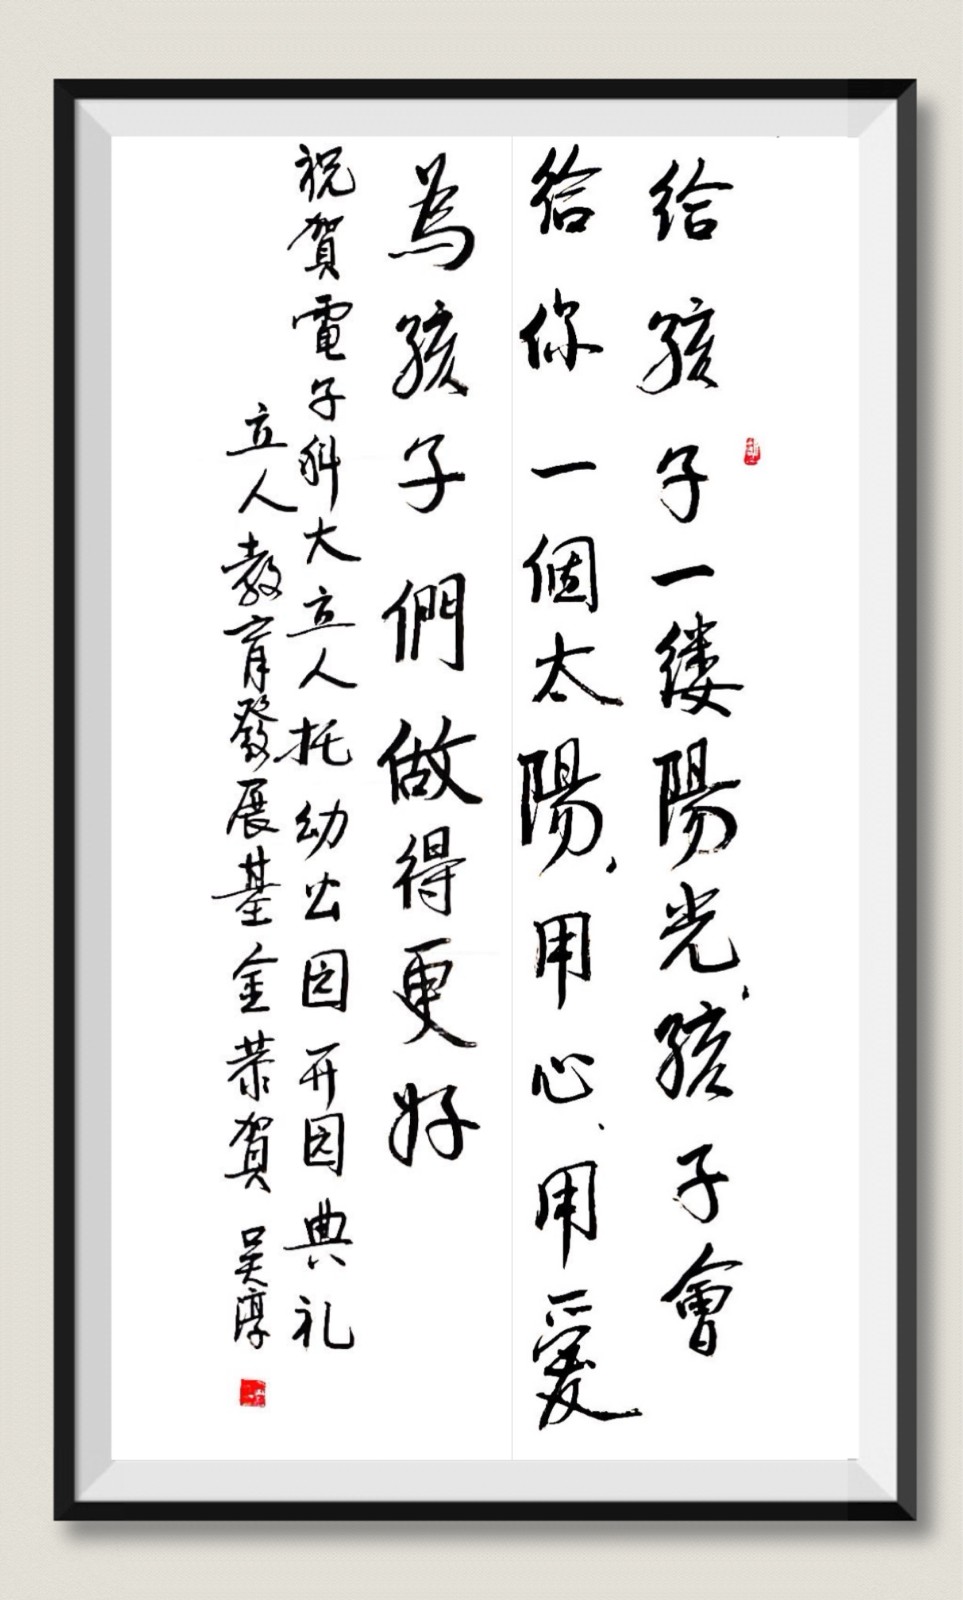 给孩子一缕陽光，孩子會
给你一個太陽，用心、用愛
為孩子們做得更好
祝賀電子科大立人托幼公园开园典礼
立人教育發展基金恭賀 吴淳